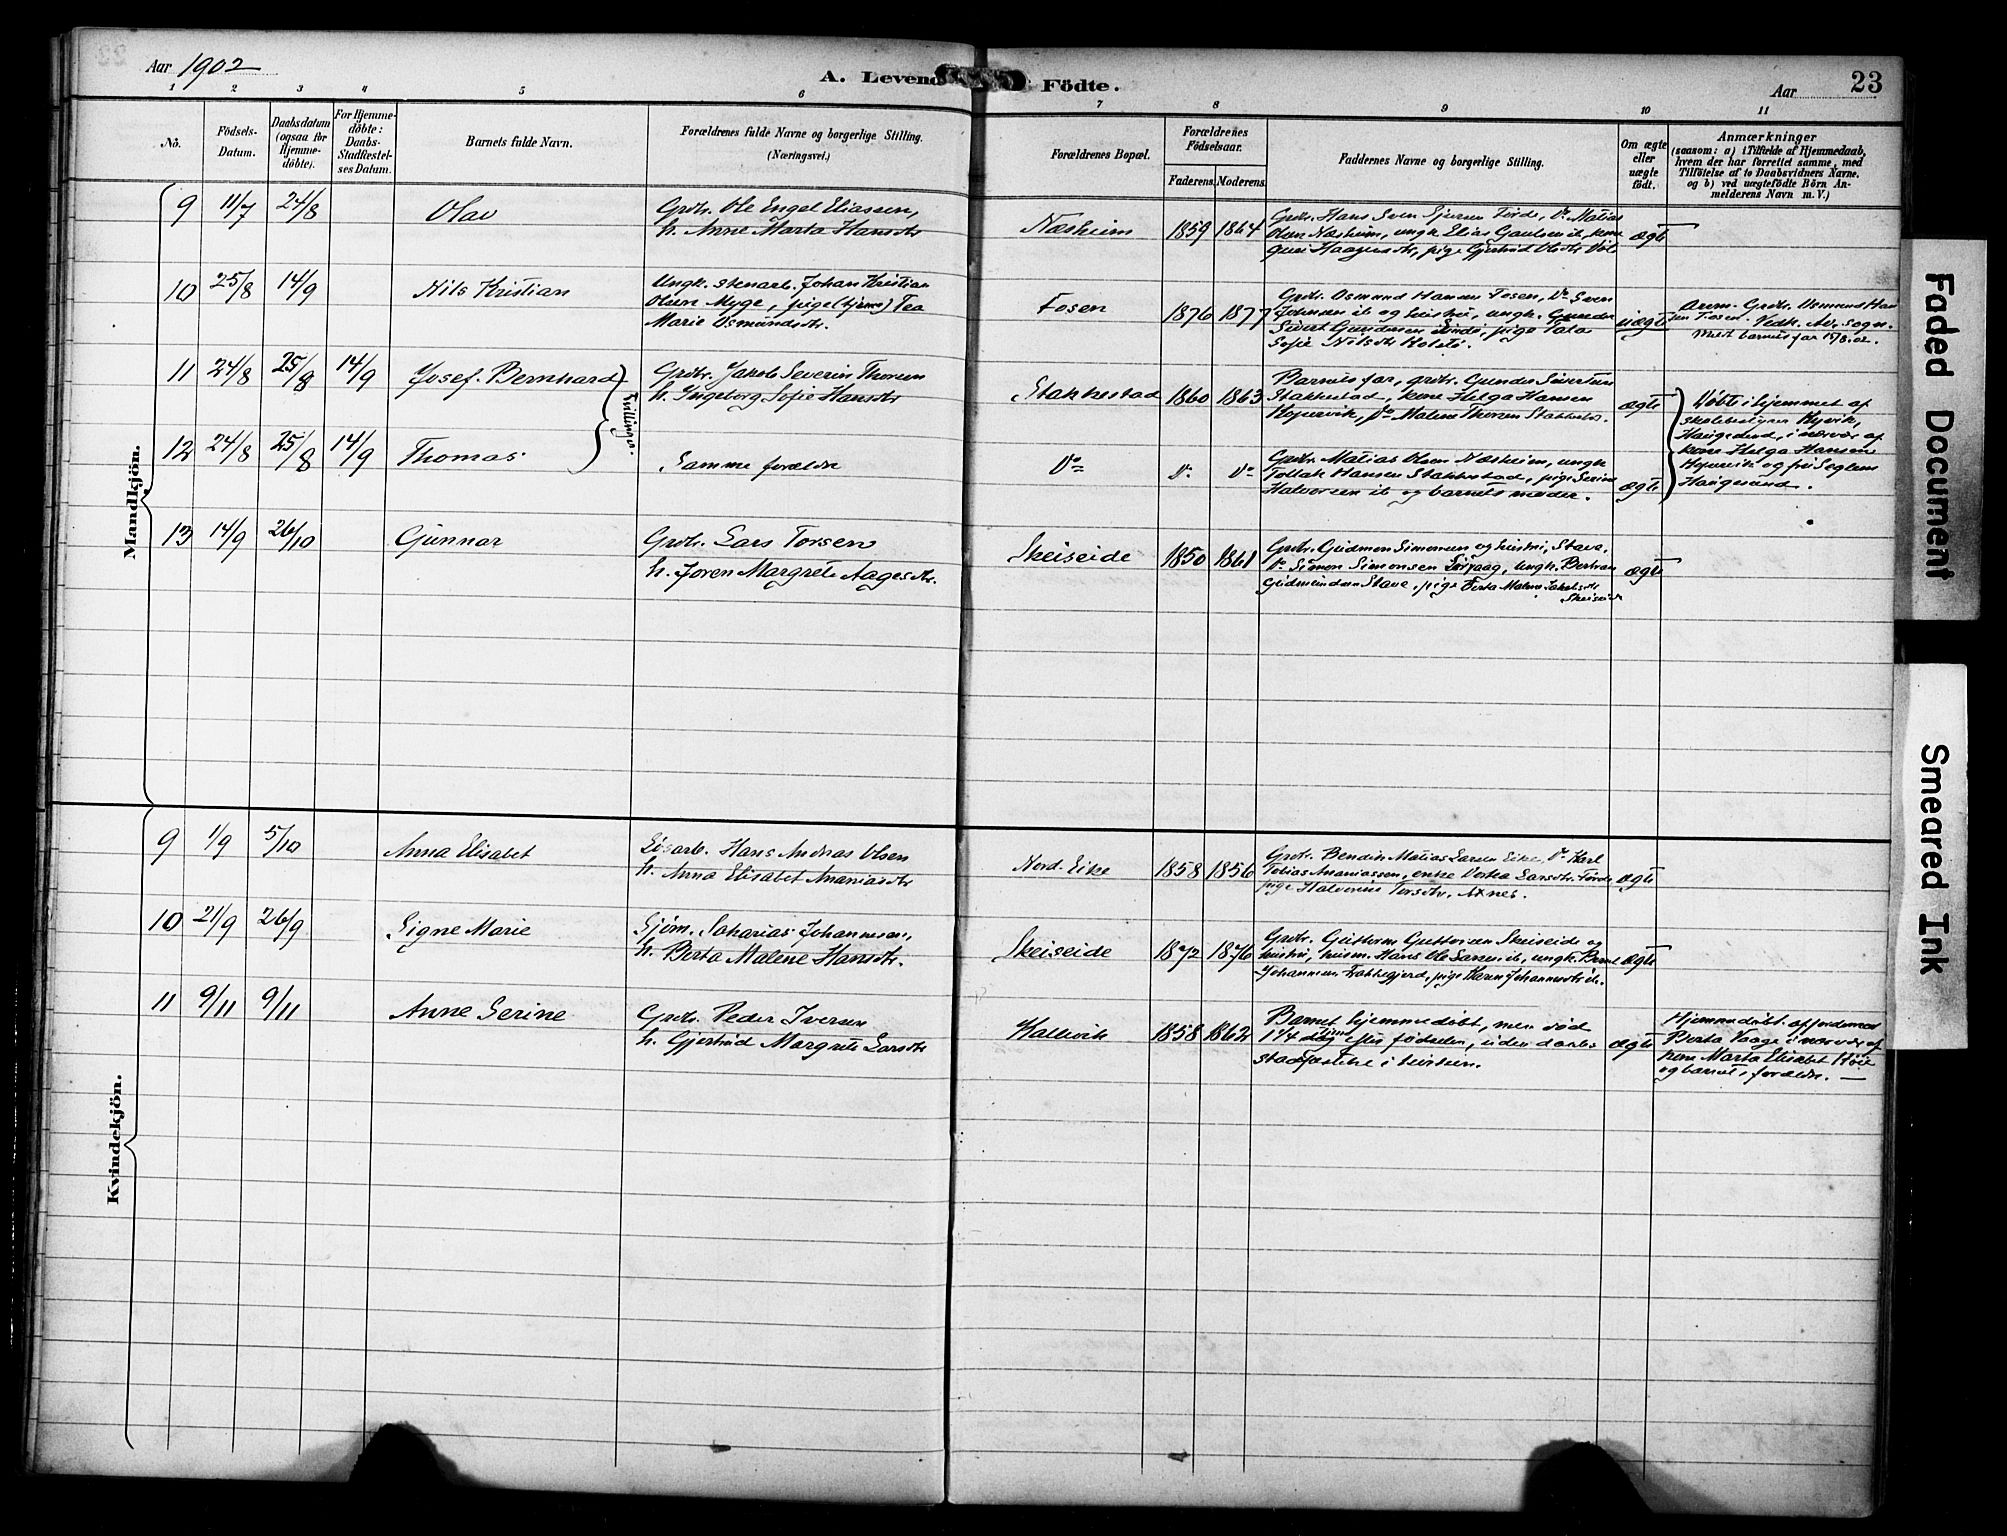 Aar 1902
A. Levende Födte.
Aar
23
1 2 3 4 5 6 7 8 9 10 11
No.
Födsels-
Datum.
Daabsdatum
(ogsaa for
Hjemme-
döbte).
For Hjemme-
döbte:
Daabs-
Stadfæstel-
ses Datum.
Barnets fulde Navn.
Forældrenes fulde Navne og borgerlige Stilling.
(Næringsvei.)
Forældrenes Bopæl.
Forældrenes
Födselsaar.
Faderens. Moderens.
Faddernes Navne og borgerlige Stilling.
Om ægte
eller
uægte
födt.
Anmærkninger
(saasom: a) i Tilfælde af Hjemmedaab,
hvem der har forrettet samme, med
Tilföielse af to Daabsvidners Navne,
og b) ved uægtefödte Börn An-
melderens Navn m. V.)
Mandkjön.
9 11/7 24/8 Olav
Grdbr. Ole Engel Eliassen,
h. Anne Marta Hansdtr
Næsheim 1859 1864
Grdbr. Hans Sven Sjursen Førde, Do Matias
Olsen Næsheim, ungk. Elias Paulsen ib, kone
Guri Haagensdtr, pige Gjertrud Olsdtr
ægte
10 25/8 14/9 Nils Kristian
Ungk. stenarb. Johan Kristian
Olsen Myge, pige (tjener) Tea
Marie Osmundsdtr.
Fosen 1876 1877
Grdbr. Osmund Hansen Fosen, Do Sven
Johnsen ib og hustru, ungk.
Sivert Gundersen pige
Sofie Nilsdtr Holstø.
uægte
Anm. Grdbr. Osmund Han
sen Fosen. Vedk. Av. sogn.
Meldt barnets far 15/8.02.
11 24/8 25/8 14/9 Josef Bernhard
Tvillinger.
Grdbr. Jakob Severin Thorsen
h. Ingeborg Sofie Hansdtr
Stakkestad 1860 1863
Barnets far, grdbr. Gunder Sivertsen
Stakkestad, kone Helga Hansen
Kopervik, Do Malene Thorsen Stakkestad.
ægte
Døbt i hjemmet af
skolebestyrer Kyvik,
Haugesund, i nærvær af
kone Helga Hansen
Kopervik og frk Seglem
Haugesund.
12 24/8 25/8 14/9 Thomas
Samme forældre
Do Do Do
Grdbr. Matias Olsen Næsheim, ungk
Tollak Hansen Stakkestad, pige Serine
Halvorsen ib og barnets moder.
ægte
13 14/9 26/10 Gunnar
Grdbr. Lars Torsen
h. Joren Margrete Aagesdtr.
Skeiseide 1850 1861
Grdbr. Gudmun Simonsen og hustru, Stave.
Do Simon Simonsen Sørvaag, ungk. Bertran
Gudmundsen Stave, pige Berta Malene Jakobsdtr
Skeiseide
ægte
Kvindekjön.
9 1/9 5/10 Anna Elisabet
Løsarb. Hans Andreas Olsen
h. Anna Elisabet Ananiasdtr
Nord. Eike 1858 1856
Grdbr. Bendik Matias Larsen Eike, Do Karl
Tobias Ananiassen, enke Dortea Larsdtr Førde
pige Halvorine Torsdtr. Axnes.
ægte
10 21/9 26/9 Signe Marie
Sjøm. Sakarias Johannesen,
h. Berta Malene Hansdtr.
Skeiseide 1872 1876
Grdbr. Guttorm Guttormsen Skeiseide og
hustru, husm. Hans Ole Larsen ib, ungk. Bernt
Johannesen Frakkagjerd, pige Karen Johannesdtr ib.
ægte
11 9/11 9/11 Anne Serine
Grdbr. Peder Iversen
h. Gjertrud Margrete Larsdtr
Kallevik 1858 1862
Barnet hjemmedøbt, men død
1 1/4 time efter fødselen, uden daabs
stadfæstelse i kirken.
ægte
Hjemmedøbt af jordemor
Berta Vaage i nærvær af
kone Marta Elisabet Høie
og barnets forældre. —
Faded Document
Smeared Ink